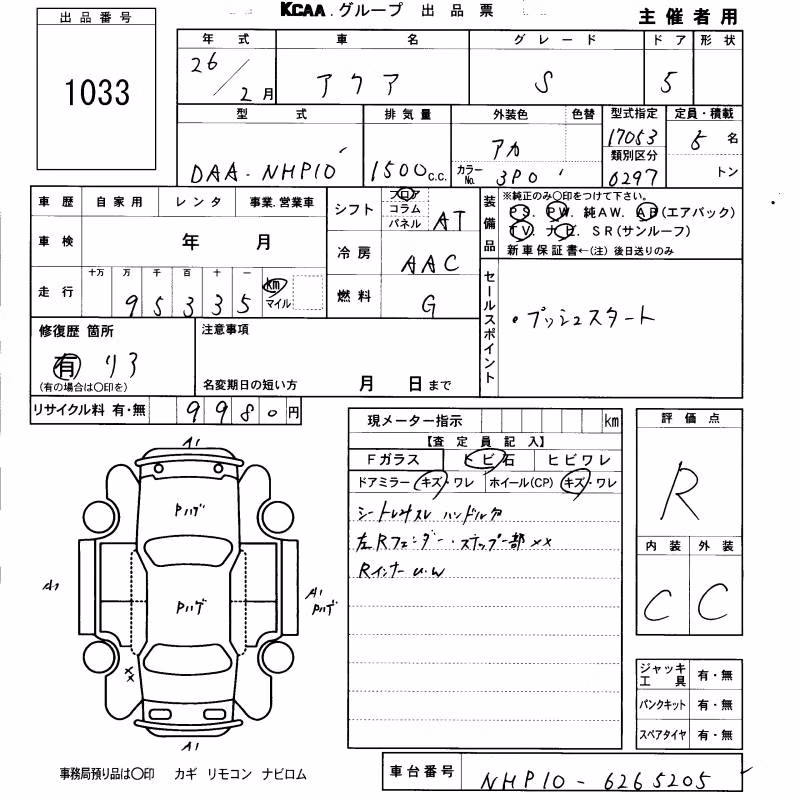 KCAA.グループ 出品票
主催者用
出品番号
1033
年式 車名 グレード ドア 形状
26/2月 アクア S 5
型式 排気量 外装色 色替 型式指定 定員・積載
DAA-NHP10 1500c.c. アカ 17053 5名
カラーNo. 3P0 類別区分 0297 トン
車歴 自家用 レンタ 事業.営業車
シフト フロア コラム パネル AT
装備品 ※純正のみ○印をつけて下さい。
PS. PW. 純AW. AB(エアバック)
TV. ナビ. SR(サンルーフ)
新車保証書←(注) 後日送りのみ
車検 年 月
冷房 AAC
走行 十万 万 千 百 十 一
95335 km マイル
燃料 G
セールスポイント
・プッシュスタート
修復歴 箇所
有 リア
(有の場合は○印を)
注意事項
名変期日の短い方 月 日まで
リサイクル料 有・無 9980円
現メーター指示 km
【査定員記入】
Fガラス トビ石 ヒビワレ
ドアミラー キズ・ワレ ホイール(CP) キズ・ワレ
シートヨレスレ ハンドル
左Rフェンダー・ステップ一部 ××
Rインナー u.w
評価点
R
内装 外装
C C
A1
Pハゲ
A1
Pハゲ
A1
Pハゲ
××
A1
ジャッキ工具 有・無
パンクキット 有・無
スペアタイヤ 有・無
事務局預り品は○印 カギ リモコン ナビロム
車台番号 NHP10-6265205